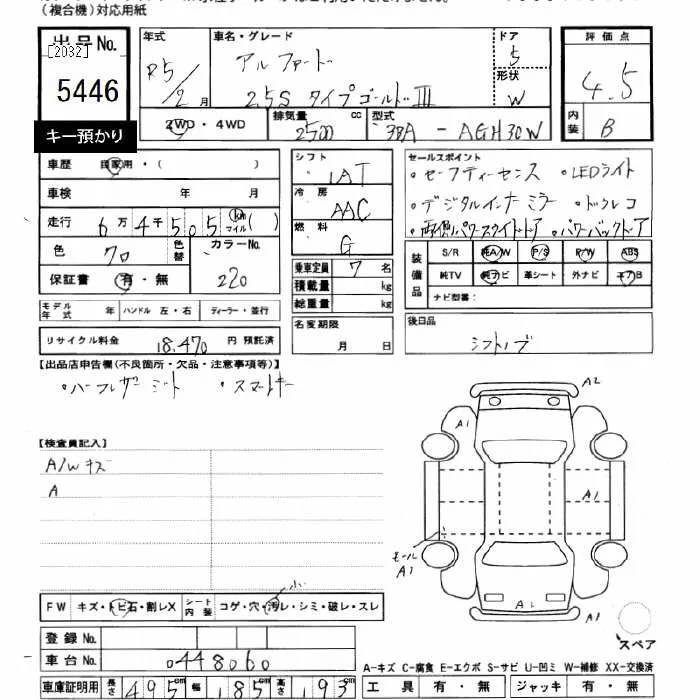 （複合機）対応用紙
出品No.
[2032]
5446
キー預かり
年式
R5/2月
車名・グレード
アルファード
2.5S タイプゴールドIII
ドア
5
形状
W
評価点
4.5
内装
B
2WD・4WD
排気量
2500 cc
型式
3BA - AGH30W
車歴 自家用・( )
車検 年 月
走行 6万4千505 km マイル ( )
色 70 色替
カラーNo. 220
保証書 有・無
シフト IAT
冷房 AAC
燃料 G
乗車定員 7名
積載量 kg
総重量 kg
セールスポイント
・セーフティーセンス ・LEDライト
・デジタルインナーミラー ・ドラレコ
・両側パワースライドドア ・パワーバックドア
装備品
S/R 純A/W P/S P/W ABS
純TV 純ナビ 革シート 外ナビ エアB
ナビ型番：
モデル年式 年 ハンドル 左・右 ディーラー・並行
リサイクル料金 18,470 円 預託済
名変期限 月 日
後日品
シフトノブ
【出品店申告欄(不良箇所・欠品・注意事項等)】
・ハーフレザーシート ・スマートキー
【検査員記入】
A/Wキズ
A
A2
A1
A1
モールA1
A1
A1
スペア
FW キズ・トビ石・割レX
シート内装 コゲ・穴・汚レ・シミ・破レ・スレ
小
登録No.
車台No. 0448060
車庫証明用 長さ 495cm 幅 185cm 高さ 193cm
A-キズ C-腐食 E-エクボ S-サビ U-凹ミ W-補修 XX-交換済
工具 有・無 ジャッキ 有・無